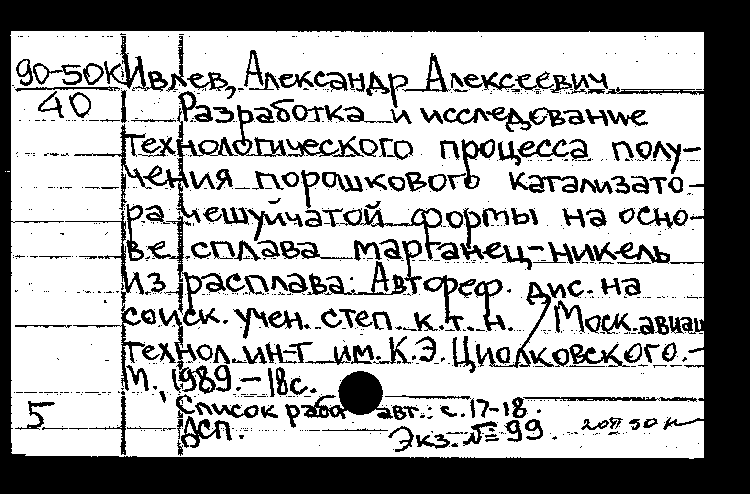 90-50К Ивлев, Александр Алексеевич.
40 Разработка и исследование
технологического процесса полу-
чения порошкового катализато-
ра чешуйчатой формы на осно-
ве сплава марганец-никель
из расплава: Автореф. дис. на
соиск. учен. степ. к.т.н. / Моск. авиац.
технол. ин-т им. К.Э. Циолковского. -
М., 1989. - 18с.
Список работ авт.: с. 17-18.
5 ДСП. Экз. № 99.